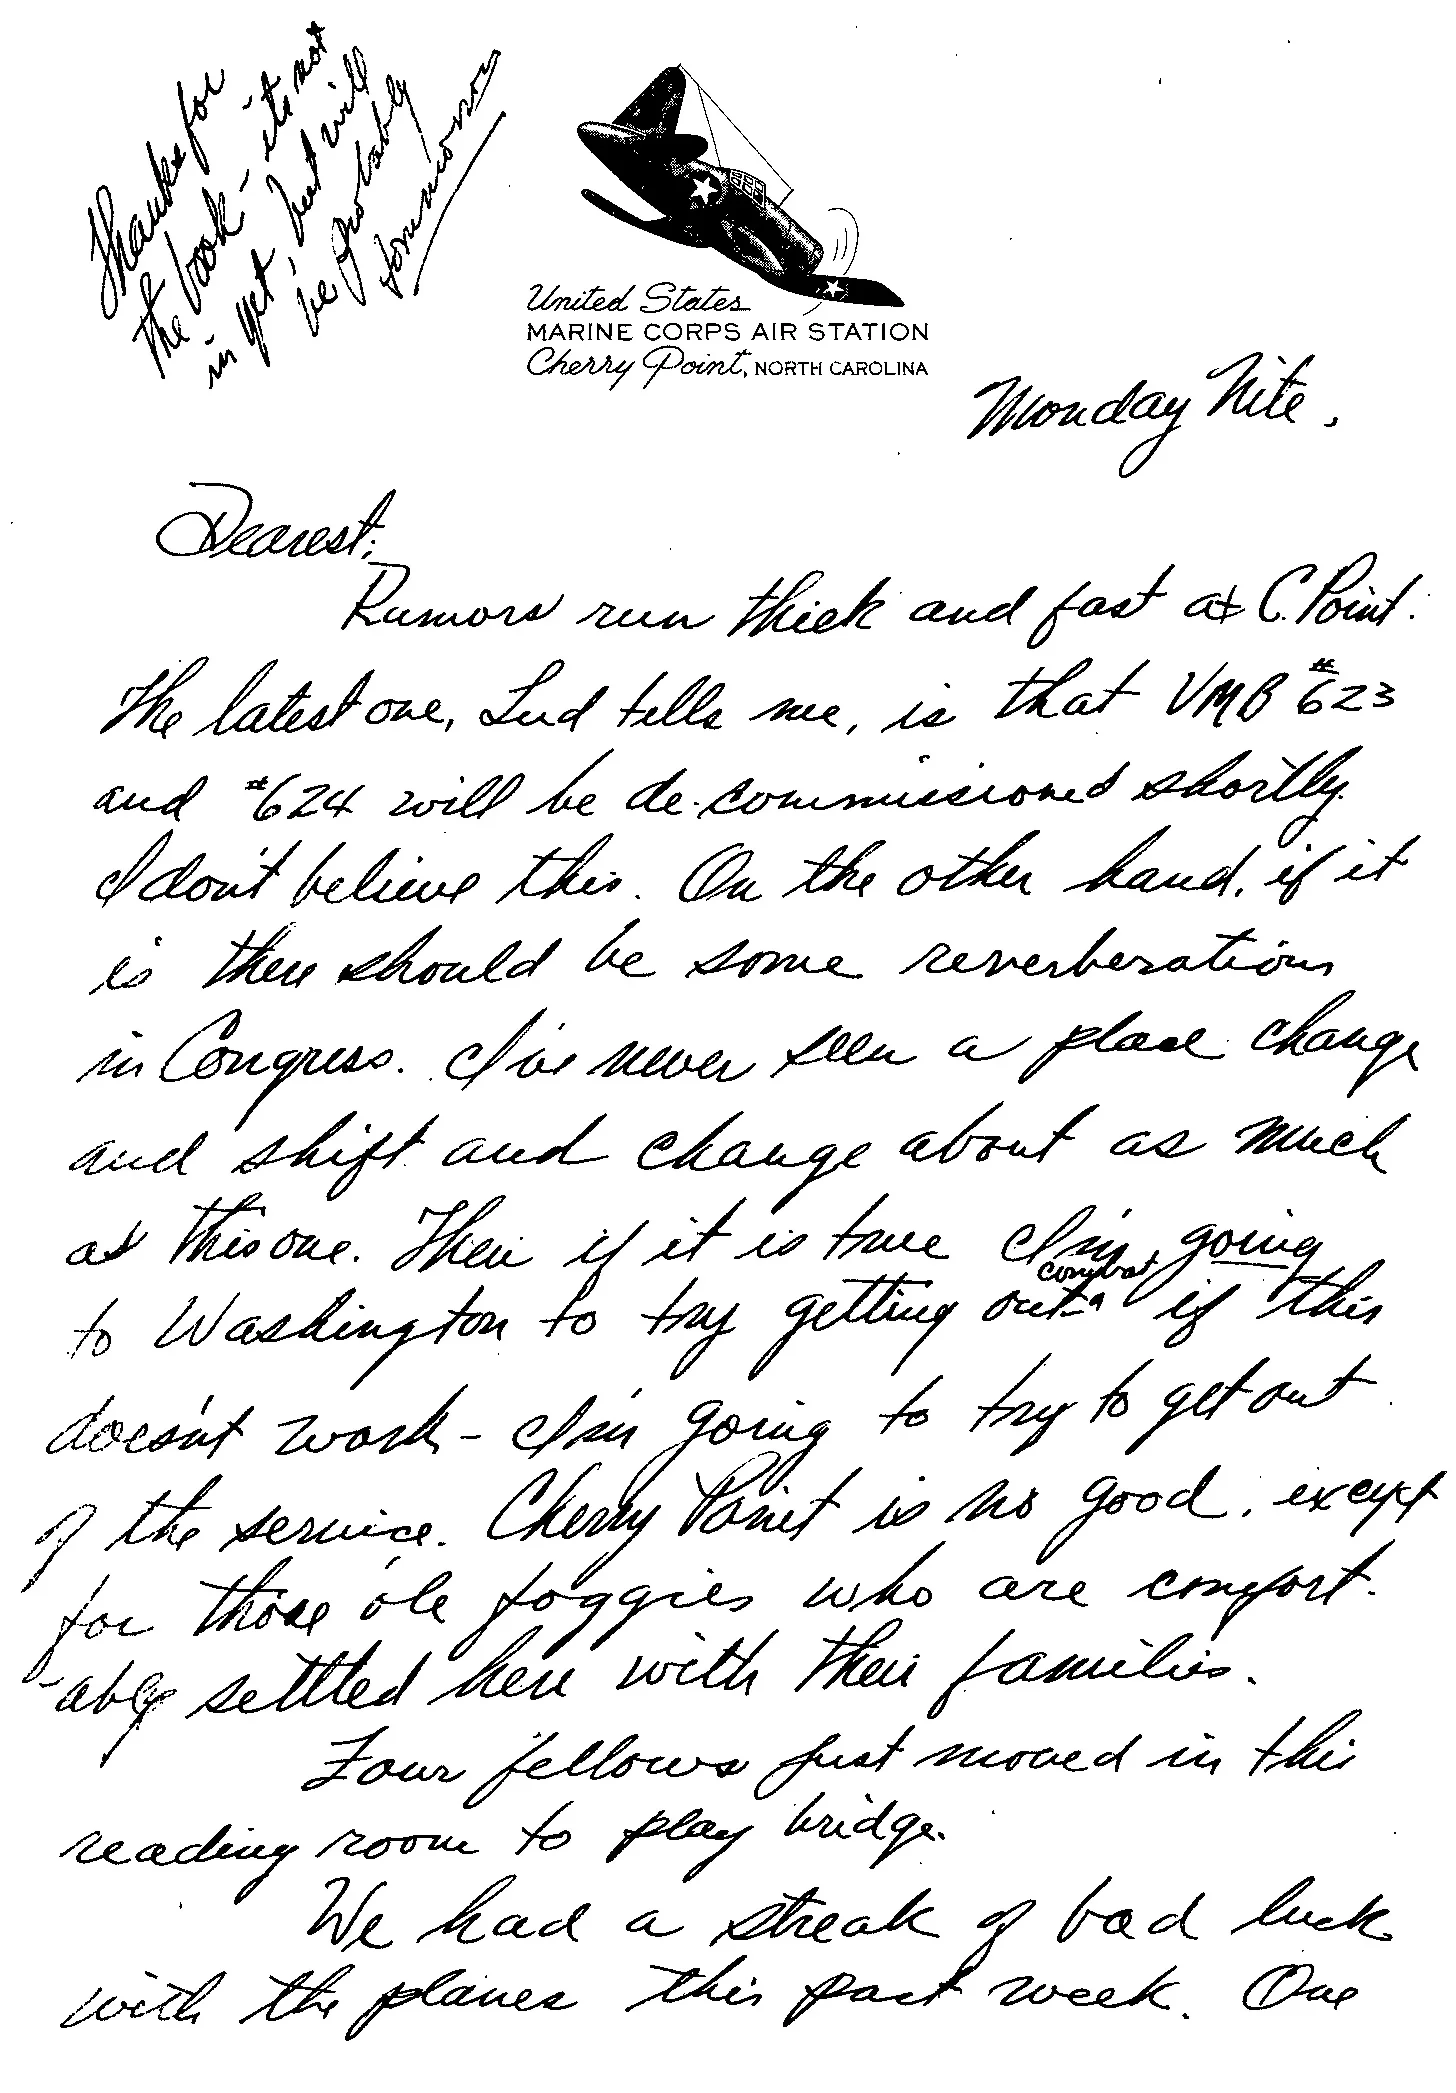 Thanks for
the book - its not
in yet, but will
be probably
tommorow
United States
MARINE CORPS AIR STATION
Cherry Point, NORTH CAROLINA
Monday Nite,
Dearest:
Rumors run thick and fast at C. Point.
The latest one, Lud tells me, is that VMB #623
and #624 will be de-commissioned shortly.
I don't believe this. On the other hand, if it
is there should be some reverberations
in Congress. I've never seen a place change
and shift and change about as much
as this one. Then if it is true I'm going
combat
to Washington to try getting out - if this
doesn't work - I'm going to try to get out
of the service. Cherry Point is no good, except
for those ole foggies who are comfort-
-ably settled here with their families.
Four fellows just moved in this
reading room to play bridge.
We had a streak of bad luck
with the planes this past week. One